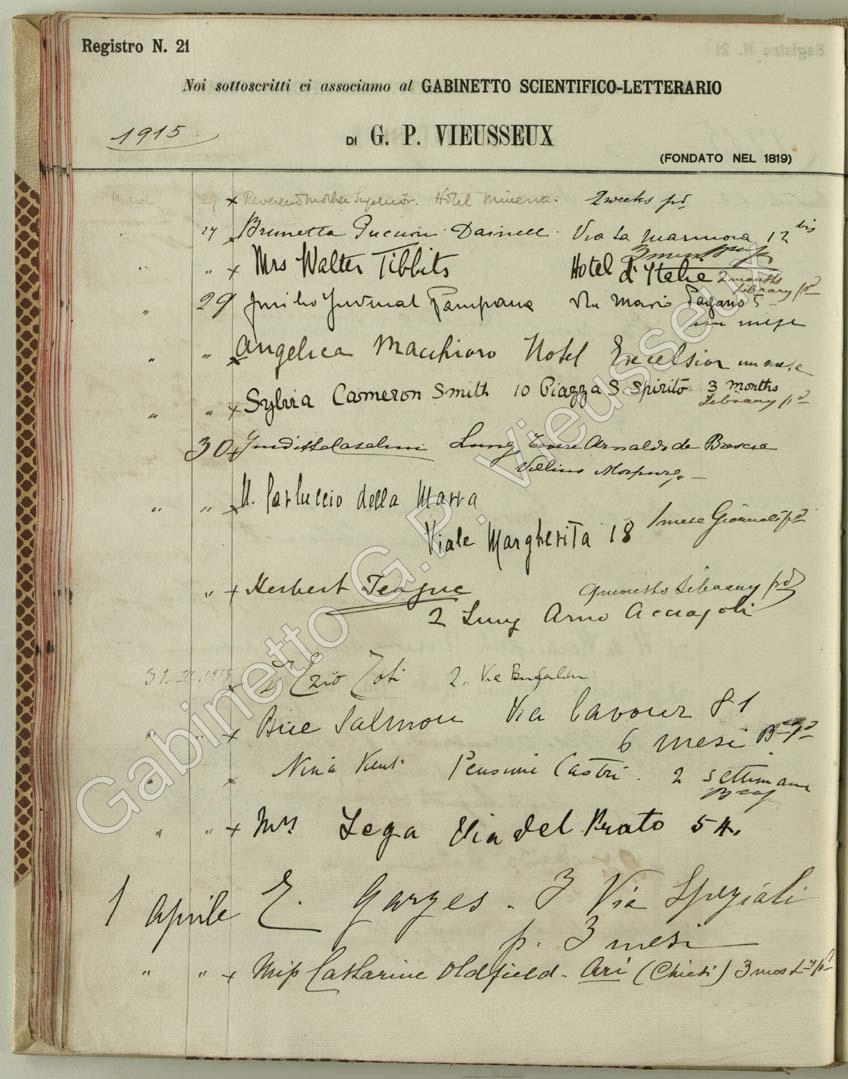 Registro N. 21
Noi sottoscritti ci associamo al GABINETTO SCIENTIFICO-LETTERARIO
1915
DI G. P. VIEUSSEUX
(FONDATO NEL 1819)
March 27 x Reverend Mother Superior. Hotel Minerva. 2 weeks pd
" 27 x Brunetta Dainelli Via La Marmora 12 bis
" " x Mrs Walter Tibbits Hotel d'Italie 2 months
Library pd
" 29 Pampana Via Mario Pagano 5
un mese
" " x Angelica Macchioro Hotel Excelsior un mese
" " x Sylvia Cameron Smith 10 Piazza S. Spirito 3 months
Library pd
30 x Lung Arnaldo da Brescia
Villino Morpurgo
" " x Carluccio della Marra
Viale Margherita 18 1 mese Giornali pd
" x Herbert Teague months Library pd
2 Lung Arno Acciajoli
31. III. 1915 x Dr Ezio Zoti 2. Via
" " x Bice Salmon Via Cavour 81
6 mesi
" x Nina Pensione Castri. 2 settimane
" " x Mrs Lega Via del Prato 54.
1 aprile E. Garzes - 3 Via Speziali
p. 3 mesi
" " x Miss Catharine Oldfield - Ari (Chieti) 3 mos L-y pd
Gabinetto G.P. Vieusseux